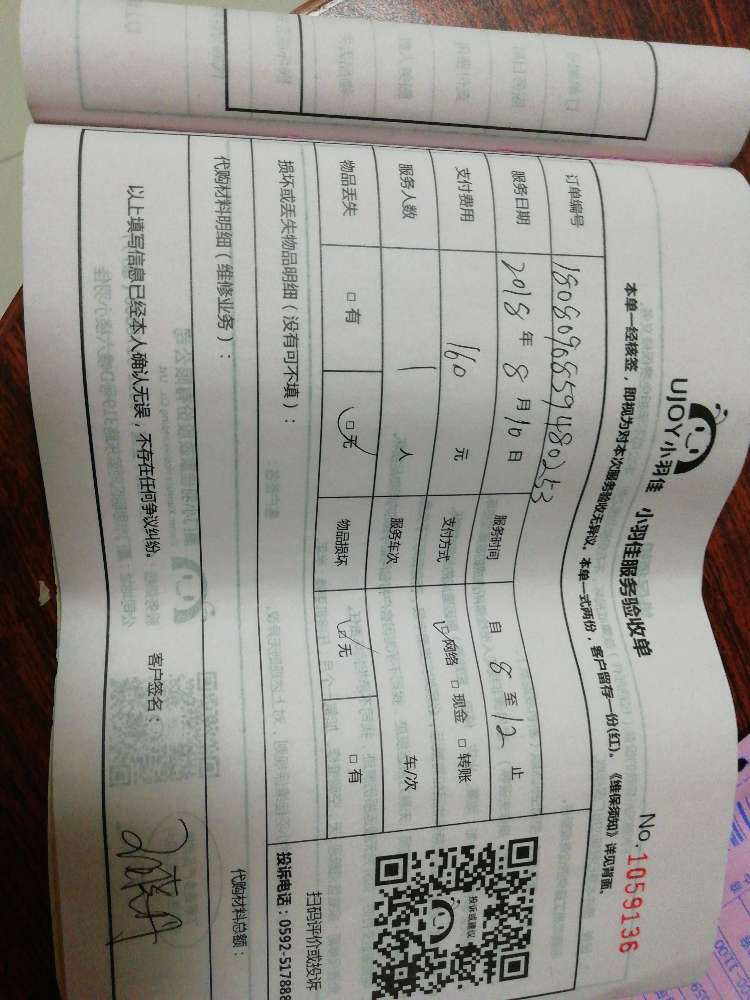 UJOY小羽佳
小羽佳服务验收单
No. 1059136
本单一经核签，即视为对本次服务验收无异议。本单一式两份，客户留存一份(红)。《维保须知》详见背面。
订单编号 1808090859480253
服务日期 2018 年 8 月 10 日 服务时间 自 8 至 12 止
支付费用 160 元 支付方式 □网络 □现金 □转账
服务人数 1 人 服务车次 车/次
物品丢失 □有 □无 物品损坏 □无 □有
投诉或建议
扫码评价或投诉
投诉电话：0592-517888
损坏或丢失物品明细（没有可不填）：
代购材料明细（维修业务）：
代购材料总额：
以上填写信息已经本人确认无误，不存在任何争议纠纷。
客户签名：